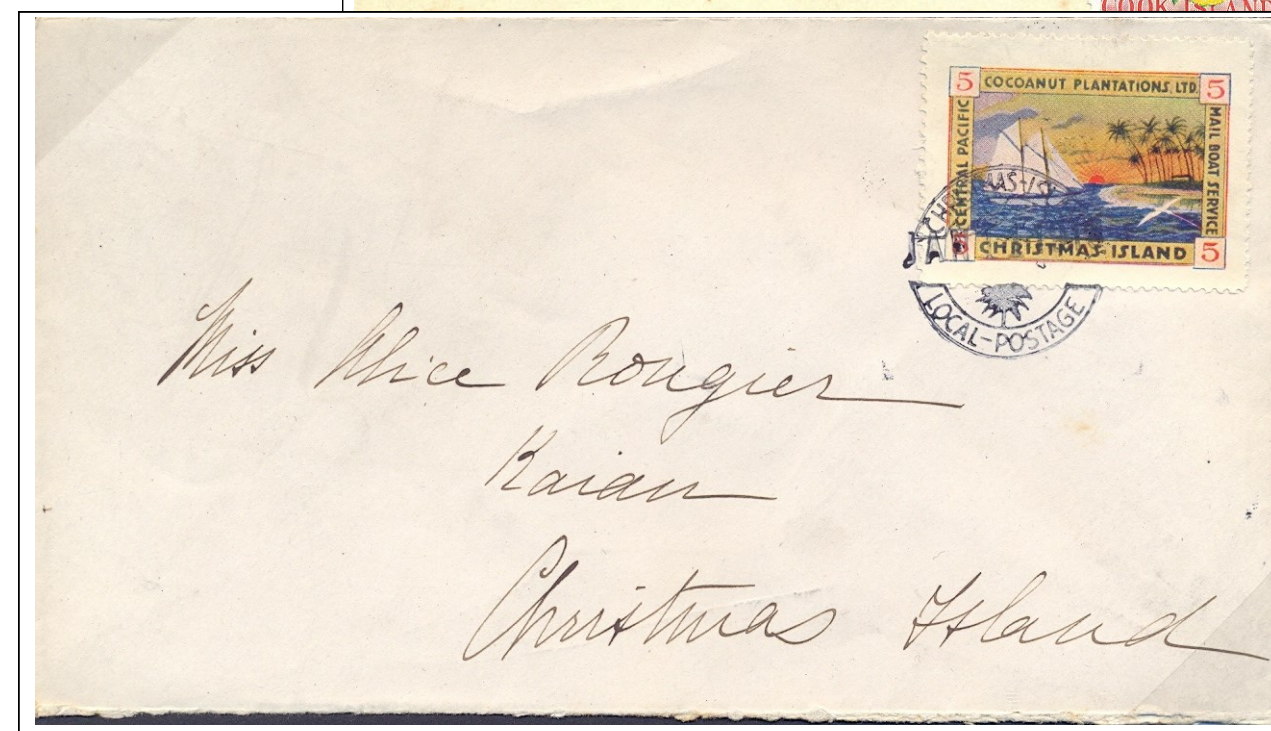 COOK ISLAND
5 COCOANUT PLANTATIONS, LTD. 5
CENTRAL PACIFIC
MAIL BOAT SERVICE
CHRISTMAS ISLAND 5
LOCAL-POSTAGE
Miss Alice Rougier
Christmas Island